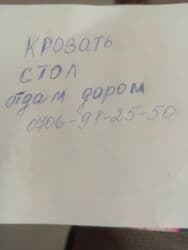 КРОВАТЬ
СТОЛ
отдам даром
0706-91-25-50